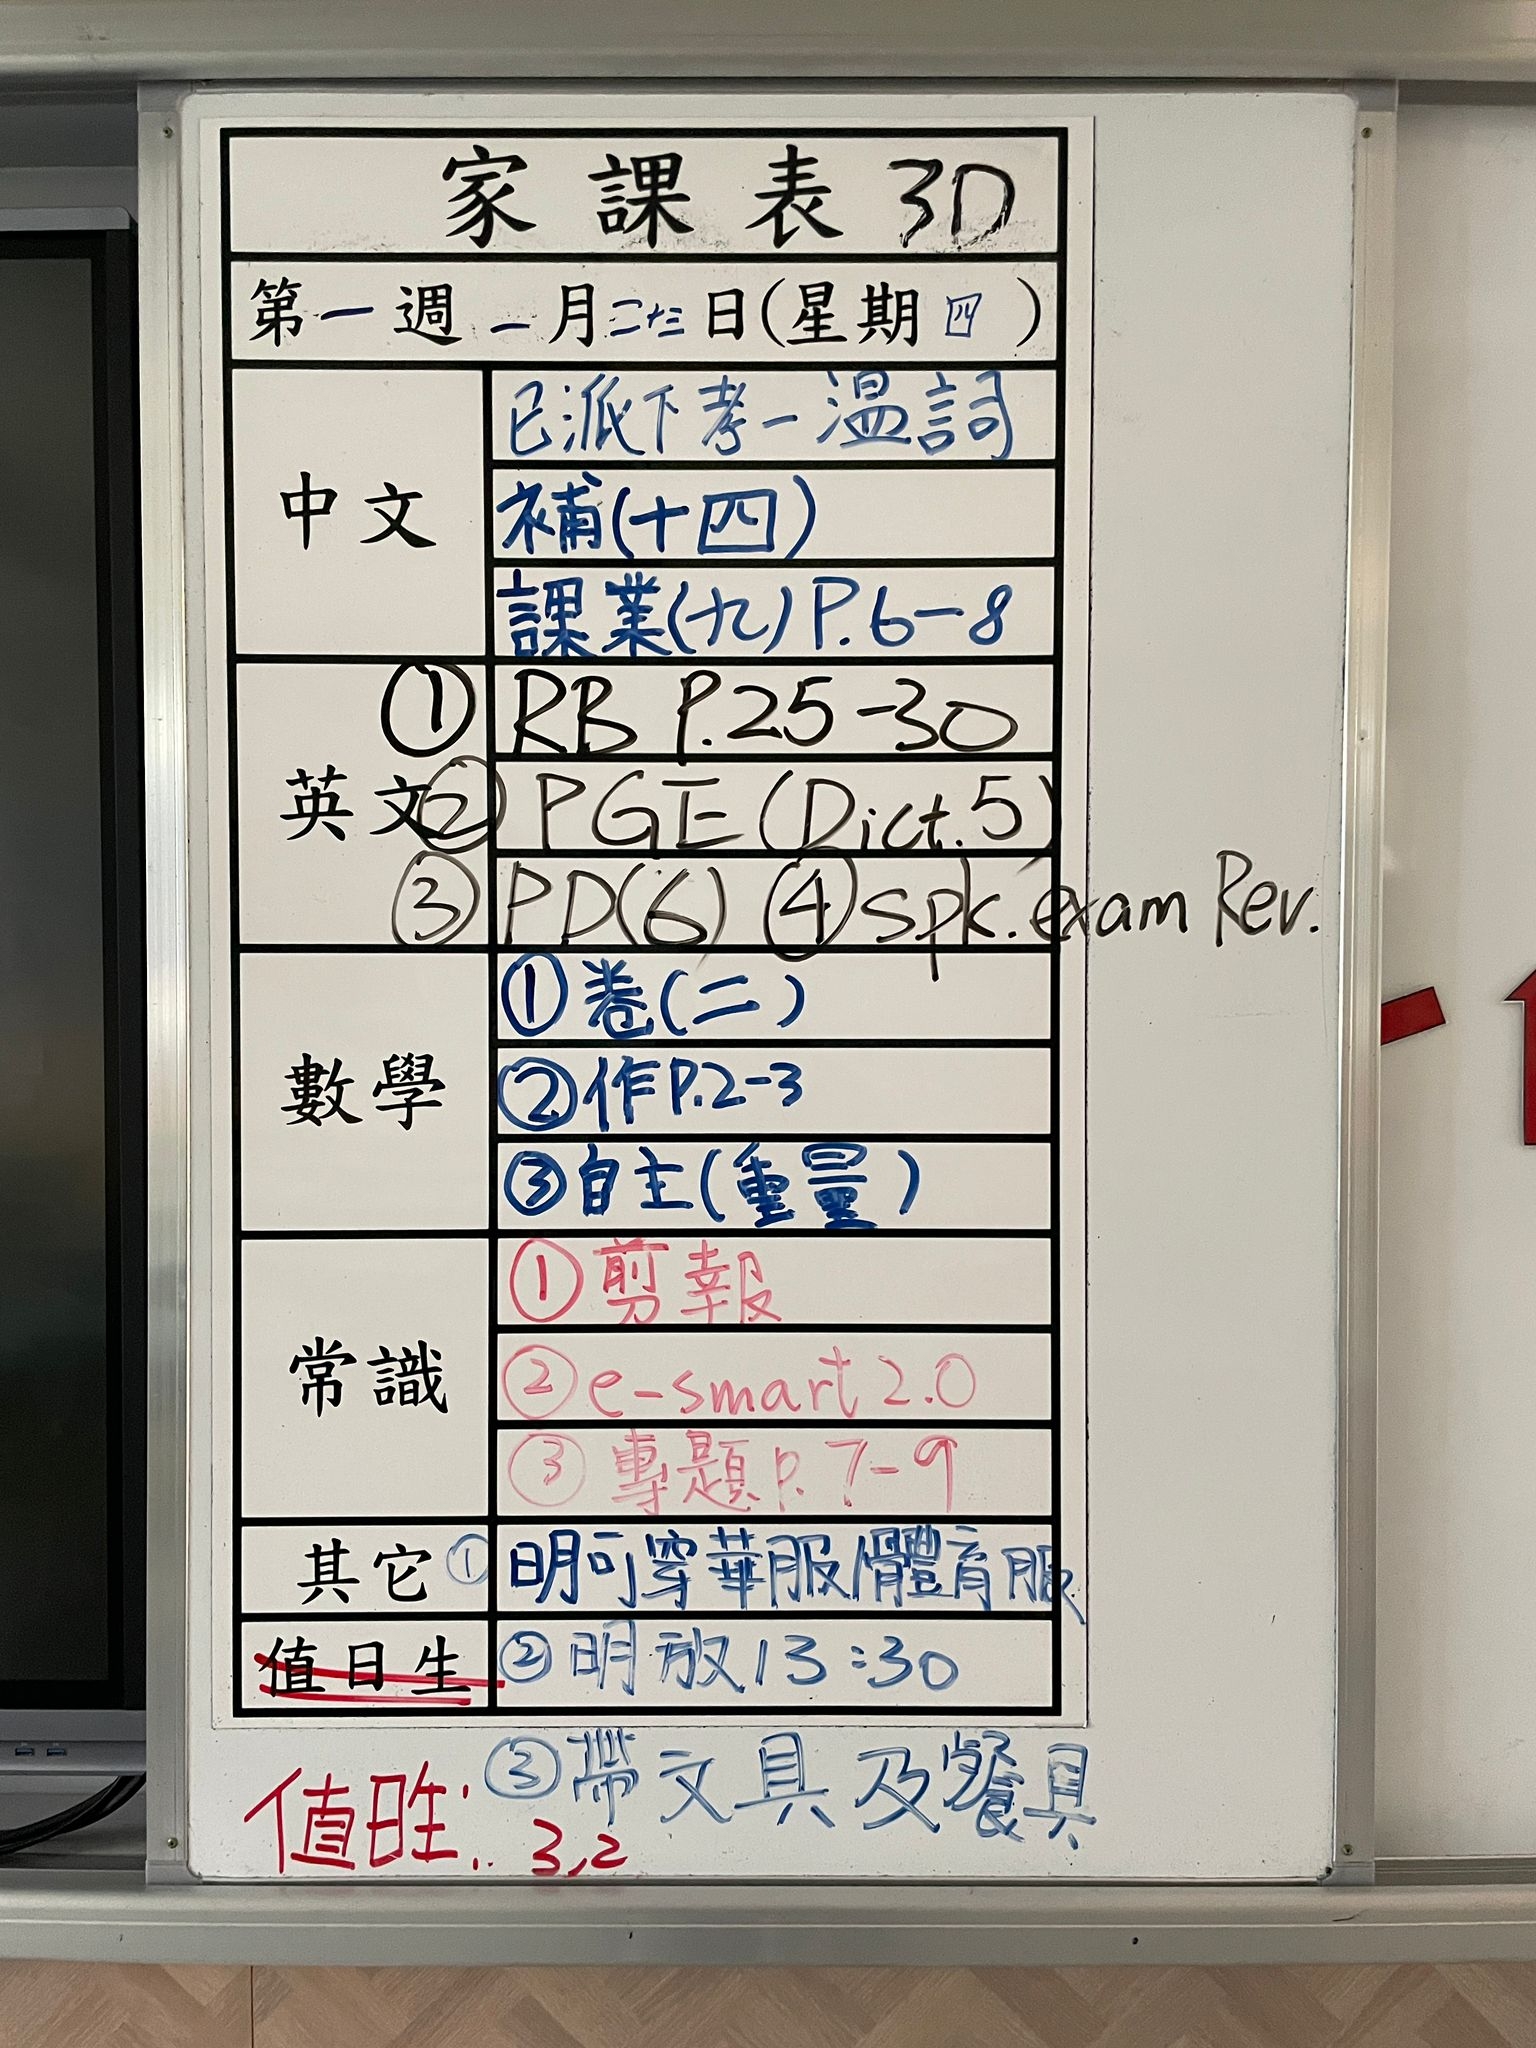 家課表 3D
第一週 一月二十三日(星期四)
中文
已派下孝一溫詞
補(十四)
課業(九)P.6-8
英文
① RB P.25-30
② PGE (Dict.5)
③ PD(6) ④ spk. exam Rev.
數學
① 卷(二)
② 作P.2-3
③ 自主(重量)
常識
① 剪報
② e-smart 2.0
③ 專題P.7-9
其它
① 明可穿華服/體育服
值日生
② 明放13:30
③ 帶文具及餐具
值日生: 3,2